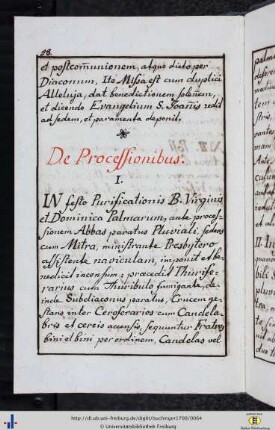 98.
et postcom̃unionem, atque dicto per
Diaconum, Ite Missa est cum duplici
Alleluja, dat benedictionem solem̃em,
et dicendo Evangelium S. Joañis redit
ad sedem, et paramenta deponit.
De Processionibus.
I.
IN festo Purificationis B. Virginis
et Dominica Palmarum, ante proces-
sionem Abbas paratus Pluviali, sedens
cum Mitra, ministrante Presbytero
assistente naviculam, imponit et be-
nedicit incensum; præcedit Thurife-
rarius cum Thuribulo fumigante, de-
inde Subdiaconus paratus, Crucem ge-
stans inter Ceroferarios cum Candela-
bris et cereis accensis, sequuntur Fratres
bini et bini per ordinem, Candelas vel
http://dl.ub.uni-freiburg.de/diglit/buchreger1798/0064
© Universitätsbibliothek Freiburg